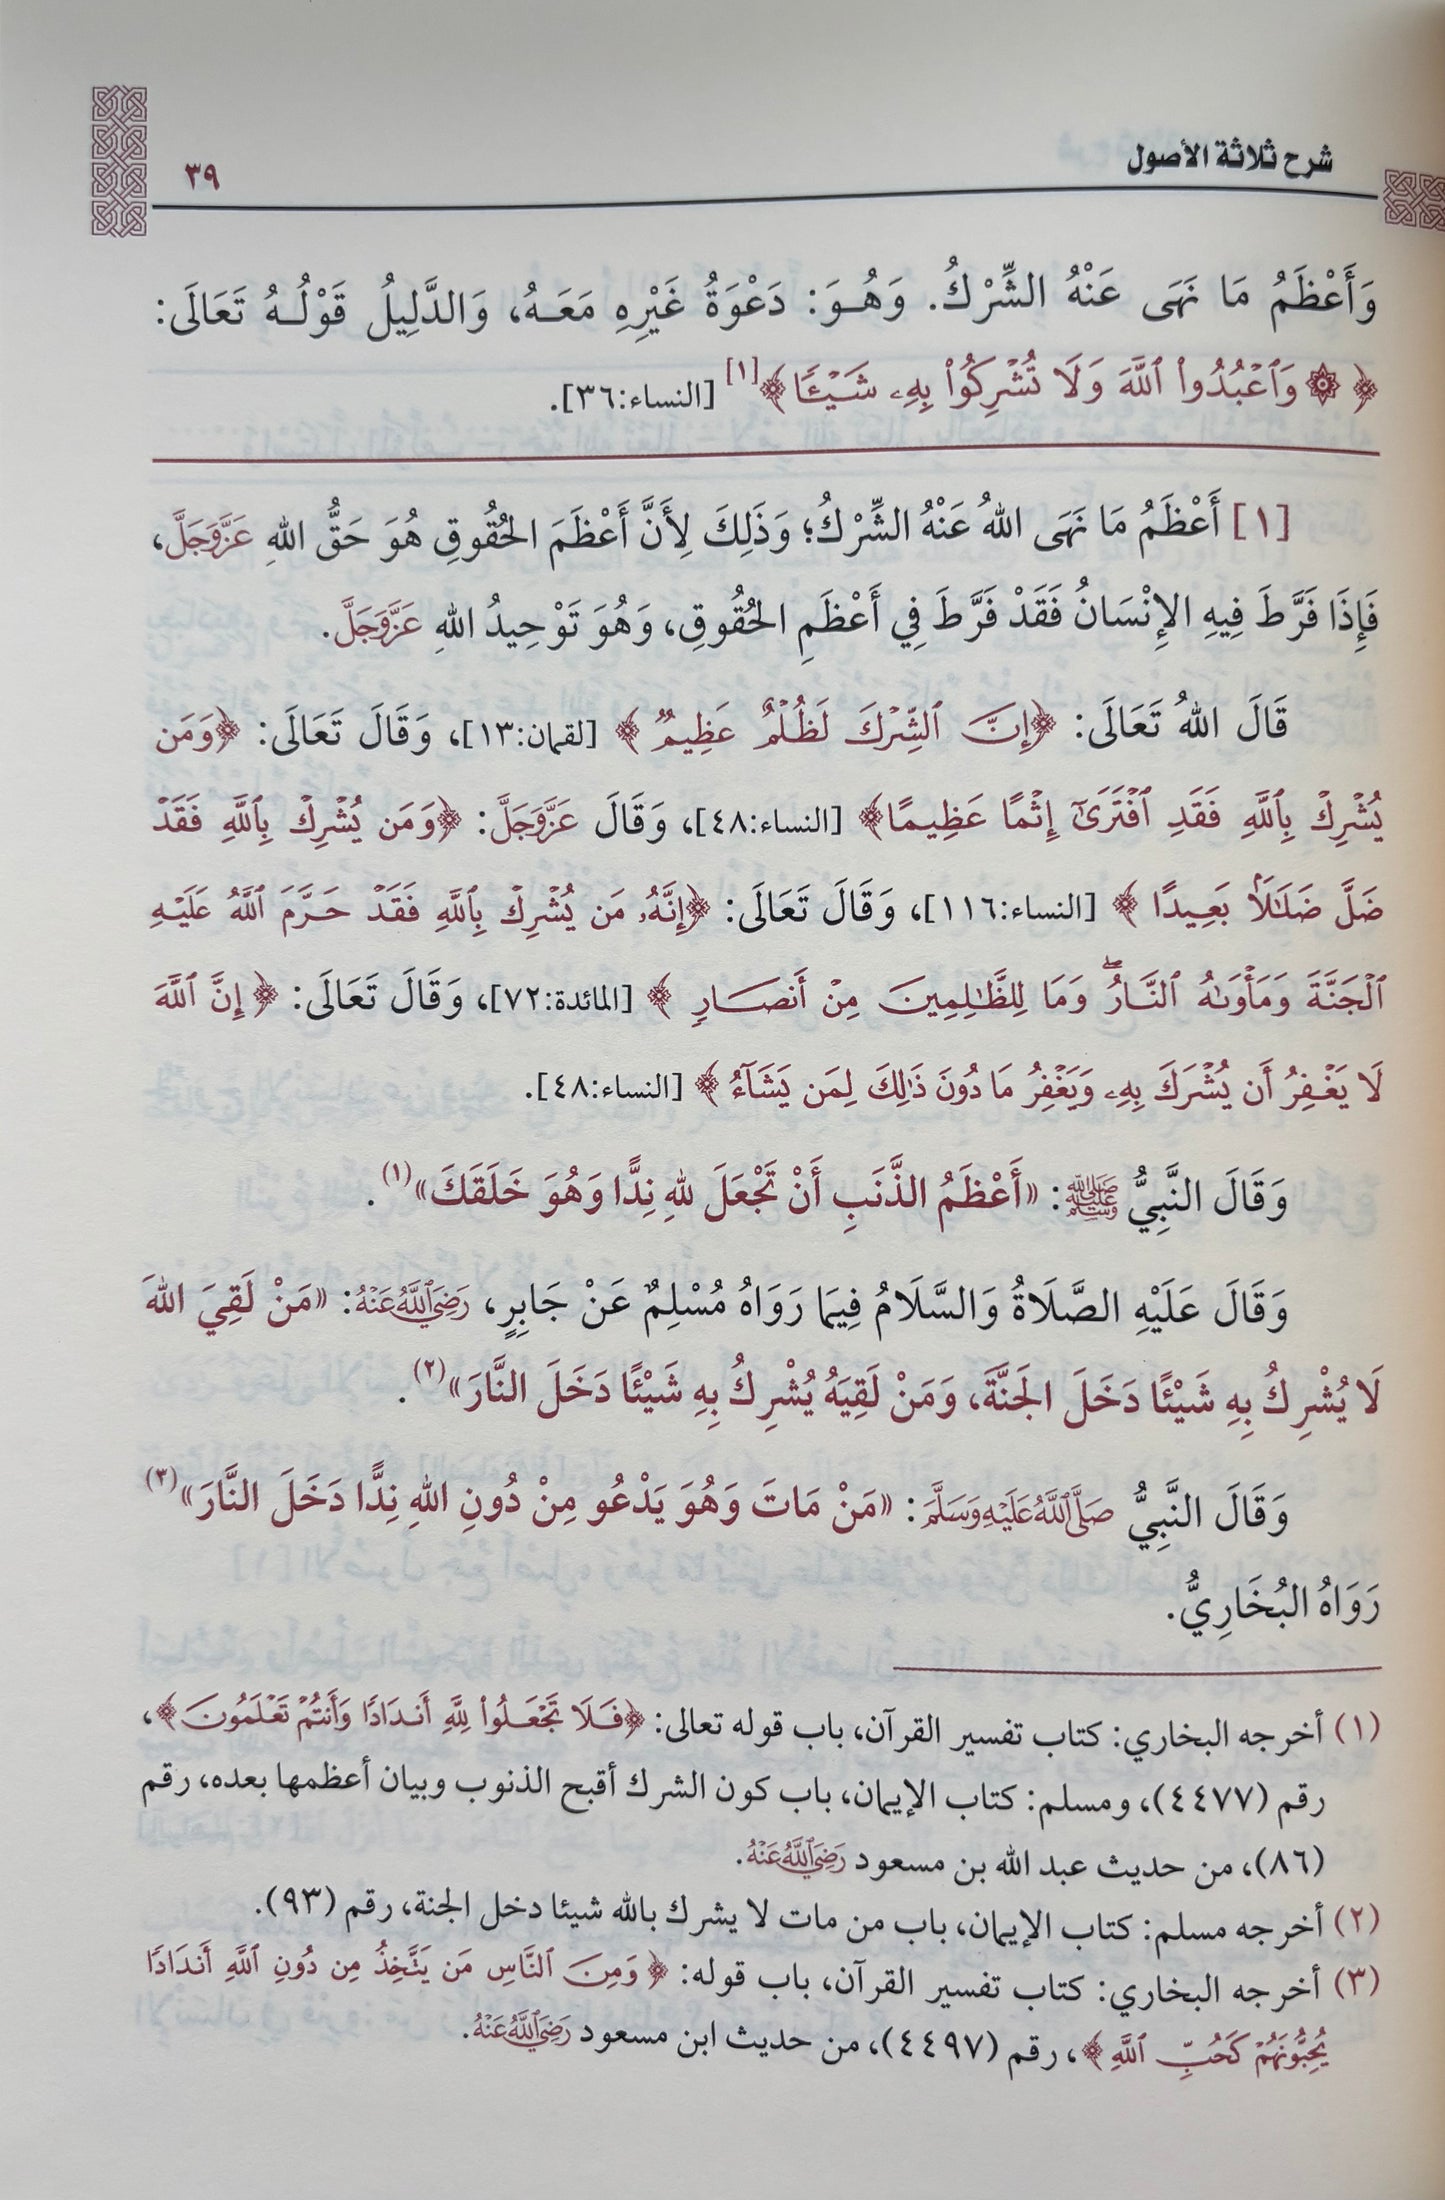 شرح ثلاثة الأصول
٣٩
وَأَعْظَمُ مَا نَهَى عَنْهُ الشِّرْكُ. وَهُوَ: دَعْوَةُ غَيْرِهِ مَعَهُ، وَالدَّلِيلُ قَوْلُهُ تَعَالَى:
﴿ ۞ وَٱعْبُدُوا۟ ٱللَّهَ وَلَا تُشْرِكُوا۟ بِهِۦ شَيْـًٔا﴾[١] [النساء:٣٦].
[١] أَعْظَمُ مَا نَهَى اللهُ عَنْهُ الشِّرْكُ؛ وَذَلِكَ لِأَنَّ أَعْظَمَ الحُقُوقِ هُوَ حَقُّ اللهِ عَزَّوَجَلَّ،
فَإِذَا فَرَّطَ فِيهِ الإِنْسَانُ فَقَدْ فَرَّطَ فِي أَعْظَمِ الحُقُوقِ، وَهُوَ تَوْحِيدُ اللهِ عَزَّوَجَلَّ.
قَالَ اللهُ تَعَالَى: ﴿إِنَّ ٱلشِّرْكَ لَظُلْمٌ عَظِيمٌ﴾ [لقمان:١٣]، وَقَالَ تَعَالَى: ﴿وَمَن
يُشْرِكْ بِٱللَّهِ فَقَدِ ٱفْتَرَىٰٓ إِثْمًا عَظِيمًا﴾ [النساء:٤٨]، وَقَالَ عَزَّوَجَلَّ: ﴿وَمَن يُشْرِكْ بِٱللَّهِ فَقَدْ
ضَلَّ ضَلَـٰلًۢا بَعِيدًا ﴾ [النساء:١١٦]، وَقَالَ تَعَالَى: ﴿إِنَّهُۥ مَن يُشْرِكْ بِٱللَّهِ فَقَدْ حَرَّمَ ٱللَّهُ عَلَيْهِ
ٱلْجَنَّةَ وَمَأْوَىٰهُ ٱلنَّارُ ۖ وَمَا لِلظَّـٰلِمِينَ مِنْ أَنصَارٍ ﴾ [المائدة:٧٢]، وَقَالَ تَعَالَى: ﴿ إِنَّ ٱللَّهَ
لَا يَغْفِرُ أَن يُشْرَكَ بِهِۦ وَيَغْفِرُ مَا دُونَ ذَٰلِكَ لِمَن يَشَآءُ ﴾ [النساء:٤٨].
وَقَالَ النَّبِيُّ ﷺ: «أَعْظَمُ الذَّنَبِ أَنْ تَجْعَلَ للهِ نِدًّا وَهُوَ خَلَقَكَ»(١).
وَقَالَ عَلَيْهِ الصَّلَاةُ وَالسَّلَامُ فِيمَا رَوَاهُ مُسْلِمٌ عَنْ جَابِرٍ، رَضِيَ ٱللَّهُ عَنْهُ: «مَنْ لَقِيَ اللهَ
لَا يُشْرِكُ بِهِ شَيْئًا دَخَلَ الجَنَّةَ، وَمَنْ لَقِيَهُ يُشْرِكُ بِهِ شَيْئًا دَخَلَ النَّارَ»(٢).
وَقَالَ النَّبِيُّ صَلَّى ٱللَّهُ عَلَيْهِ وَسَلَّمَ: «مَنْ مَاتَ وَهُوَ يَدْعُو مِنْ دُونِ اللهِ نِدًّا دَخَلَ النَّارَ»(٣)
رَوَاهُ البُخَارِيُّ.
(١) أخرجه البخاري: كتاب تفسير القرآن، باب قوله تعالى: ﴿فَلَا تَجْعَلُوا۟ لِلَّهِ أَندَادًا وَأَنتُمْ تَعْلَمُونَ﴾،
رقم (٤٤٧٧)، ومسلم: كتاب الإيمان، باب كون الشرك أقبح الذنوب وبيان أعظمها بعده، رقم
(٨٦)، من حديث عبد الله بن مسعود رَضِيَ ٱللَّهُ عَنْهُ.
(٢) أخرجه مسلم: كتاب الإيمان، باب من مات لا يشرك بالله شيئا دخل الجنة، رقم (٩٣).
(٣) أخرجه البخاري: كتاب تفسير القرآن، باب قوله: ﴿ وَمِنَ ٱلنَّاسِ مَن يَتَّخِذُ مِن دُونِ ٱللَّهِ أَندَادًا
يُحِبُّونَهُمْ كَحُبِّ ٱللَّهِ ﴾، رقم (٤٤٩٧)، من حديث ابن مسعود رَضِيَ ٱللَّهُ عَنْهُ.